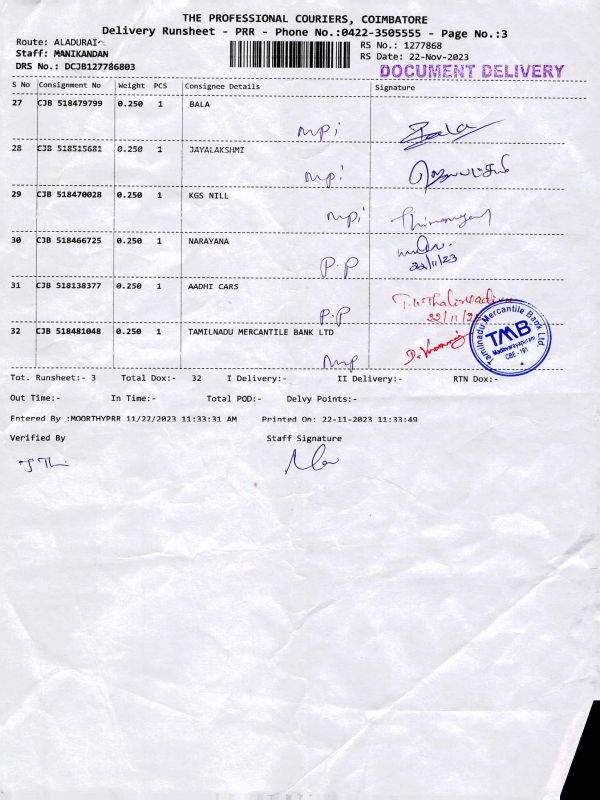 THE PROFESSIONAL COURIERS, COIMBATORE
Delivery Runsheet - PRR - Phone No.:0422-3505555 - Page No.:3
Route: ALADURAI
RS No.: 1277868
Staff: MANIKANDAN
RS Date: 22-Nov-2023
DRS No.: DCJB127786803
DOCUMENT DELIVERY
S No Consignment No Weight PCS Consignee Details Signature
27 CJB 518479799 0.250 1 BALA
mpi Bala
28 CJB 518515681 0.250 1 JAYALAKSHMI
mpi
29 CJB 518470028 0.250 1 KGS NILL
mpi
30 CJB 518466725 0.250 1 NARAYANA
P.P 22/11/23
31 CJB 518138377 0.250 1 AADHI CARS
P.P
32 CJB 518481048 0.250 1 TAMILNADU MERCANTILE BANK LTD
mp
Tamilnadu Mercantile Bank Ltd
TMB
CBE - 191
Tot. Runsheet:- 3 Total Dox:- 32 I Delivery:- II Delivery:- RTN Dox:-
Out Time:- In Time:- Total POD:- Delvy Points:-
Entered By :MOORTHYPRR 11/22/2023 11:33:31 AM Printed On: 22-11-2023 11:33:49
Verified By Staff Signature